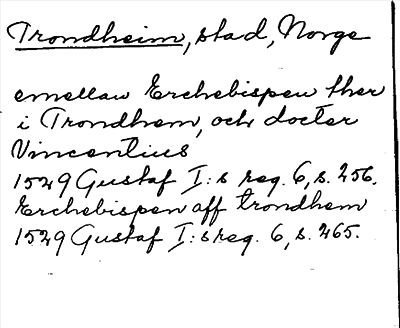 Trondheim, stad, Norge
emellan Erchebispen ther
i Trondhem, och docter
Vincentius
1529 Gustaf I:s reg. 6, s. 256.
Erchebispen aff trondhem
1529 Gustaf I:s reg. 6, s. 265.